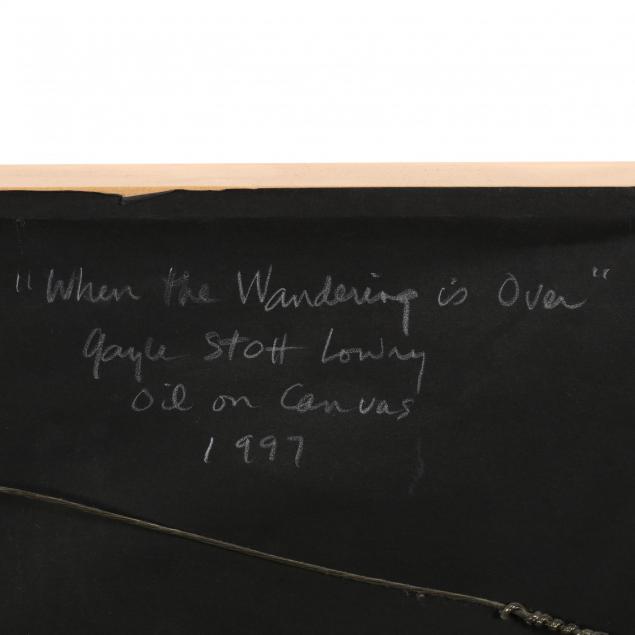 "When the Wandering is Over"
Gayle Stott Lowry
Oil on Canvas
1997